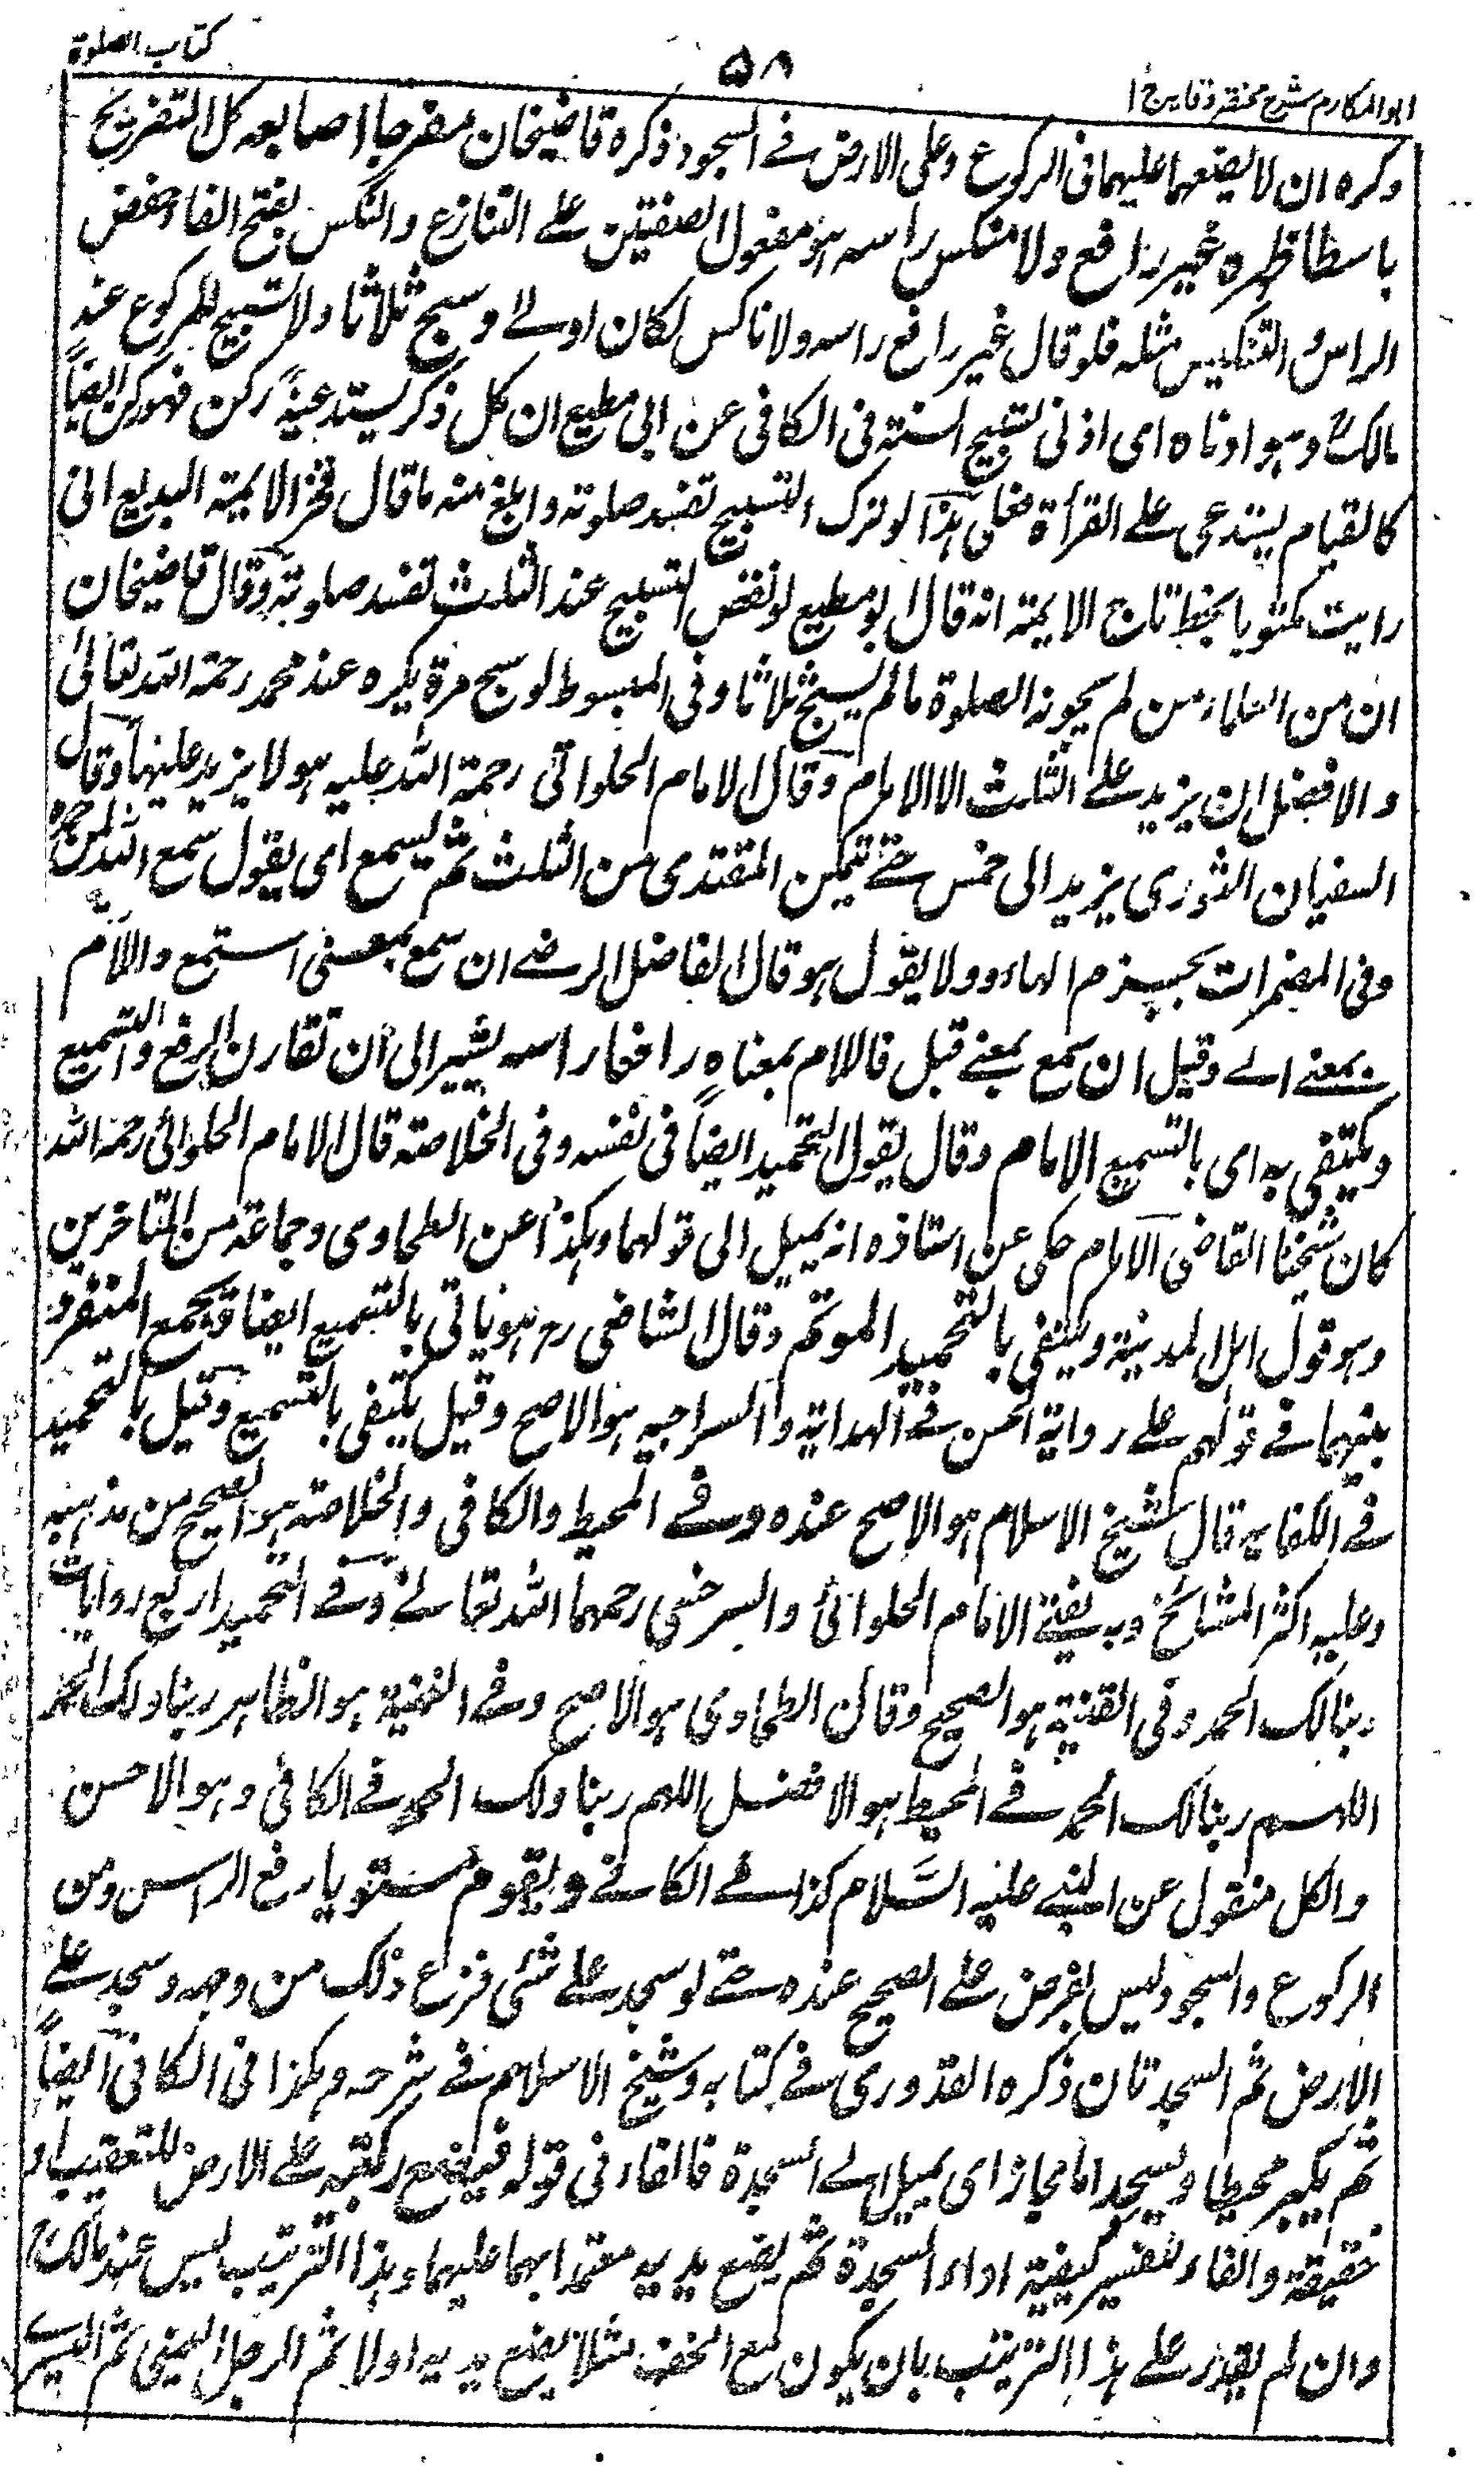 كتاب الصلوة
۵۸
ابوالمكارم شرح مختصر وقايہ ج ا
وكره ان لا يضعهما عليهما فى الركوع وعلى الارض فے السجود ذكره قاضيخان مفرجا اصابعه كل التفريج
باسطا ظهره غير رافع ولا منكس راسه ہو مفعول الصفتين علے التنازع والنكس بفتح الفاء خفض
الراس و التنكيس مثله فلو قال غير رافع راسه ولا ناكس لكان اولے و سبح ثلاثا ولا تسبيح للركوع عند
مالكؒ و ہو ادناه اى ادنى تسبيح السنة فى الكافى عن ابى مطيع ان كل ذكر يستدعيه ركن فهو ركن ايضاً
كالقيام يستدعى علے القرأة فعلى ہذا لو ترك التسبيح تفسد صلوته و ابلغ منه ما قال فخر الايمة البديع انى
رايت مكتوبا بخط تاج الايمة انه قال ابو مطيع لو نقص التسبيح عند الثلث تفسد صلوته وقال قاضيخان
ان من العلماء من لم يجوز الصلوة مالم يسبح ثلاثا وفى المبسوط لو سبح مرة يكره عند محمد رحمة الله تعالىٰ
و الافضل ان يزيد علے الثلث الا الامام وقال الامام الحلوائى رحمة الله عليه ہو لا يزيد عليها وقال
السفيان الثورى يزيد الى خمس حتے يتمكن المقتدى من الثلث ثم يسمع اى يقول سمع الله لمن حمده
وفى المضمرات بجزم الهاء ولا يقول ہو قال الفاضل الرضے ان سمع بمعنى استمع واللام
بمعنے الے وقيل ان سمع بمعنے قبل فاللام بمعناه رافعا راسه يشير الى ان تقارن الرفع والتسميع
ويكتفى به اى بالتسميع الامام وقال يقول التحميد ايضاً فى نفسه وفى الخلاصة قال الامام الحلوائى رحمة الله
كان شيخنا القاضى الامام حكى عن استاذه انه يميل الى قولهما وہكذا عن الطحاوى وجماعة من المتاخرين
وہو قول اہل المدينة ويكتفى بالتحميد الموتم وقال الشافعى رح ہو ياتى بالتسميع ايضا ويجمع المنفرد
بينهما فے قولهم علے رواية الحسن فے الهداية و السراجيه ہو الاصح وقيل يكتفى بالتسميع وقيل بالتحميد
فے الكفايہ قال شيخ الاسلام ہو الاصح عنده وفے المحيط والكافى والخلاصة ہو الصحيح من مذہبه
وعليه اكثر المشائخ وبه يفتے الامام الحلوائى والسرخسى رحمهما الله تعالےٰ وفے التحميد اربع روايات
ربنا لك الحمد وفى القنية ہو الصحيح وقال الطحاوى ہو الاصح وفے الغنية ہو الظاہر ربنا ولك الحمد
اللهم ربنا لك الحمد فے المحيط ہو الافضل اللهم ربنا ولك الحمد فے الكافى وہو الاحسن
والكل منقول عن النبے عليه السَّلام كذا فے الكافے ويقوم مستويا رفع الراس ومن
الركوع والسجود ليس بفرض علے الصحيح عنده حتے لو سجد علے شئى فنزع ذلك من وجهه وسجد علے
الارض ثم السجدتان ذكره القدورى فے كتابه وشيخ الاسلام فے شرحه وہكذا فى الكافى ايضاً
ثم يكبر محيطا ويسجد اما مجاز اى يميل الے السجدة فالفاء فى قوله فيضع ركبتيه علے الارض للتعقيب او
حقيقة والفاء لتفسير كيفية اداء السجدة ثم يضع يديه معتمدا بهما عليهما وہذا الترتيب ليس عند مالكؒ
وان لم يقدر علے ہذا الترتيب بان يكون مع الخف مثلا يضع يديه اولا ثم الرجل اليمنى ثم اليسرے